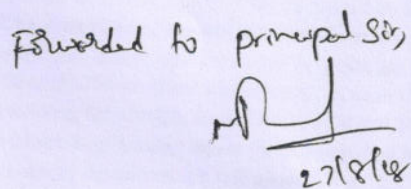 Forwarded to principal Sir,
27/8/18